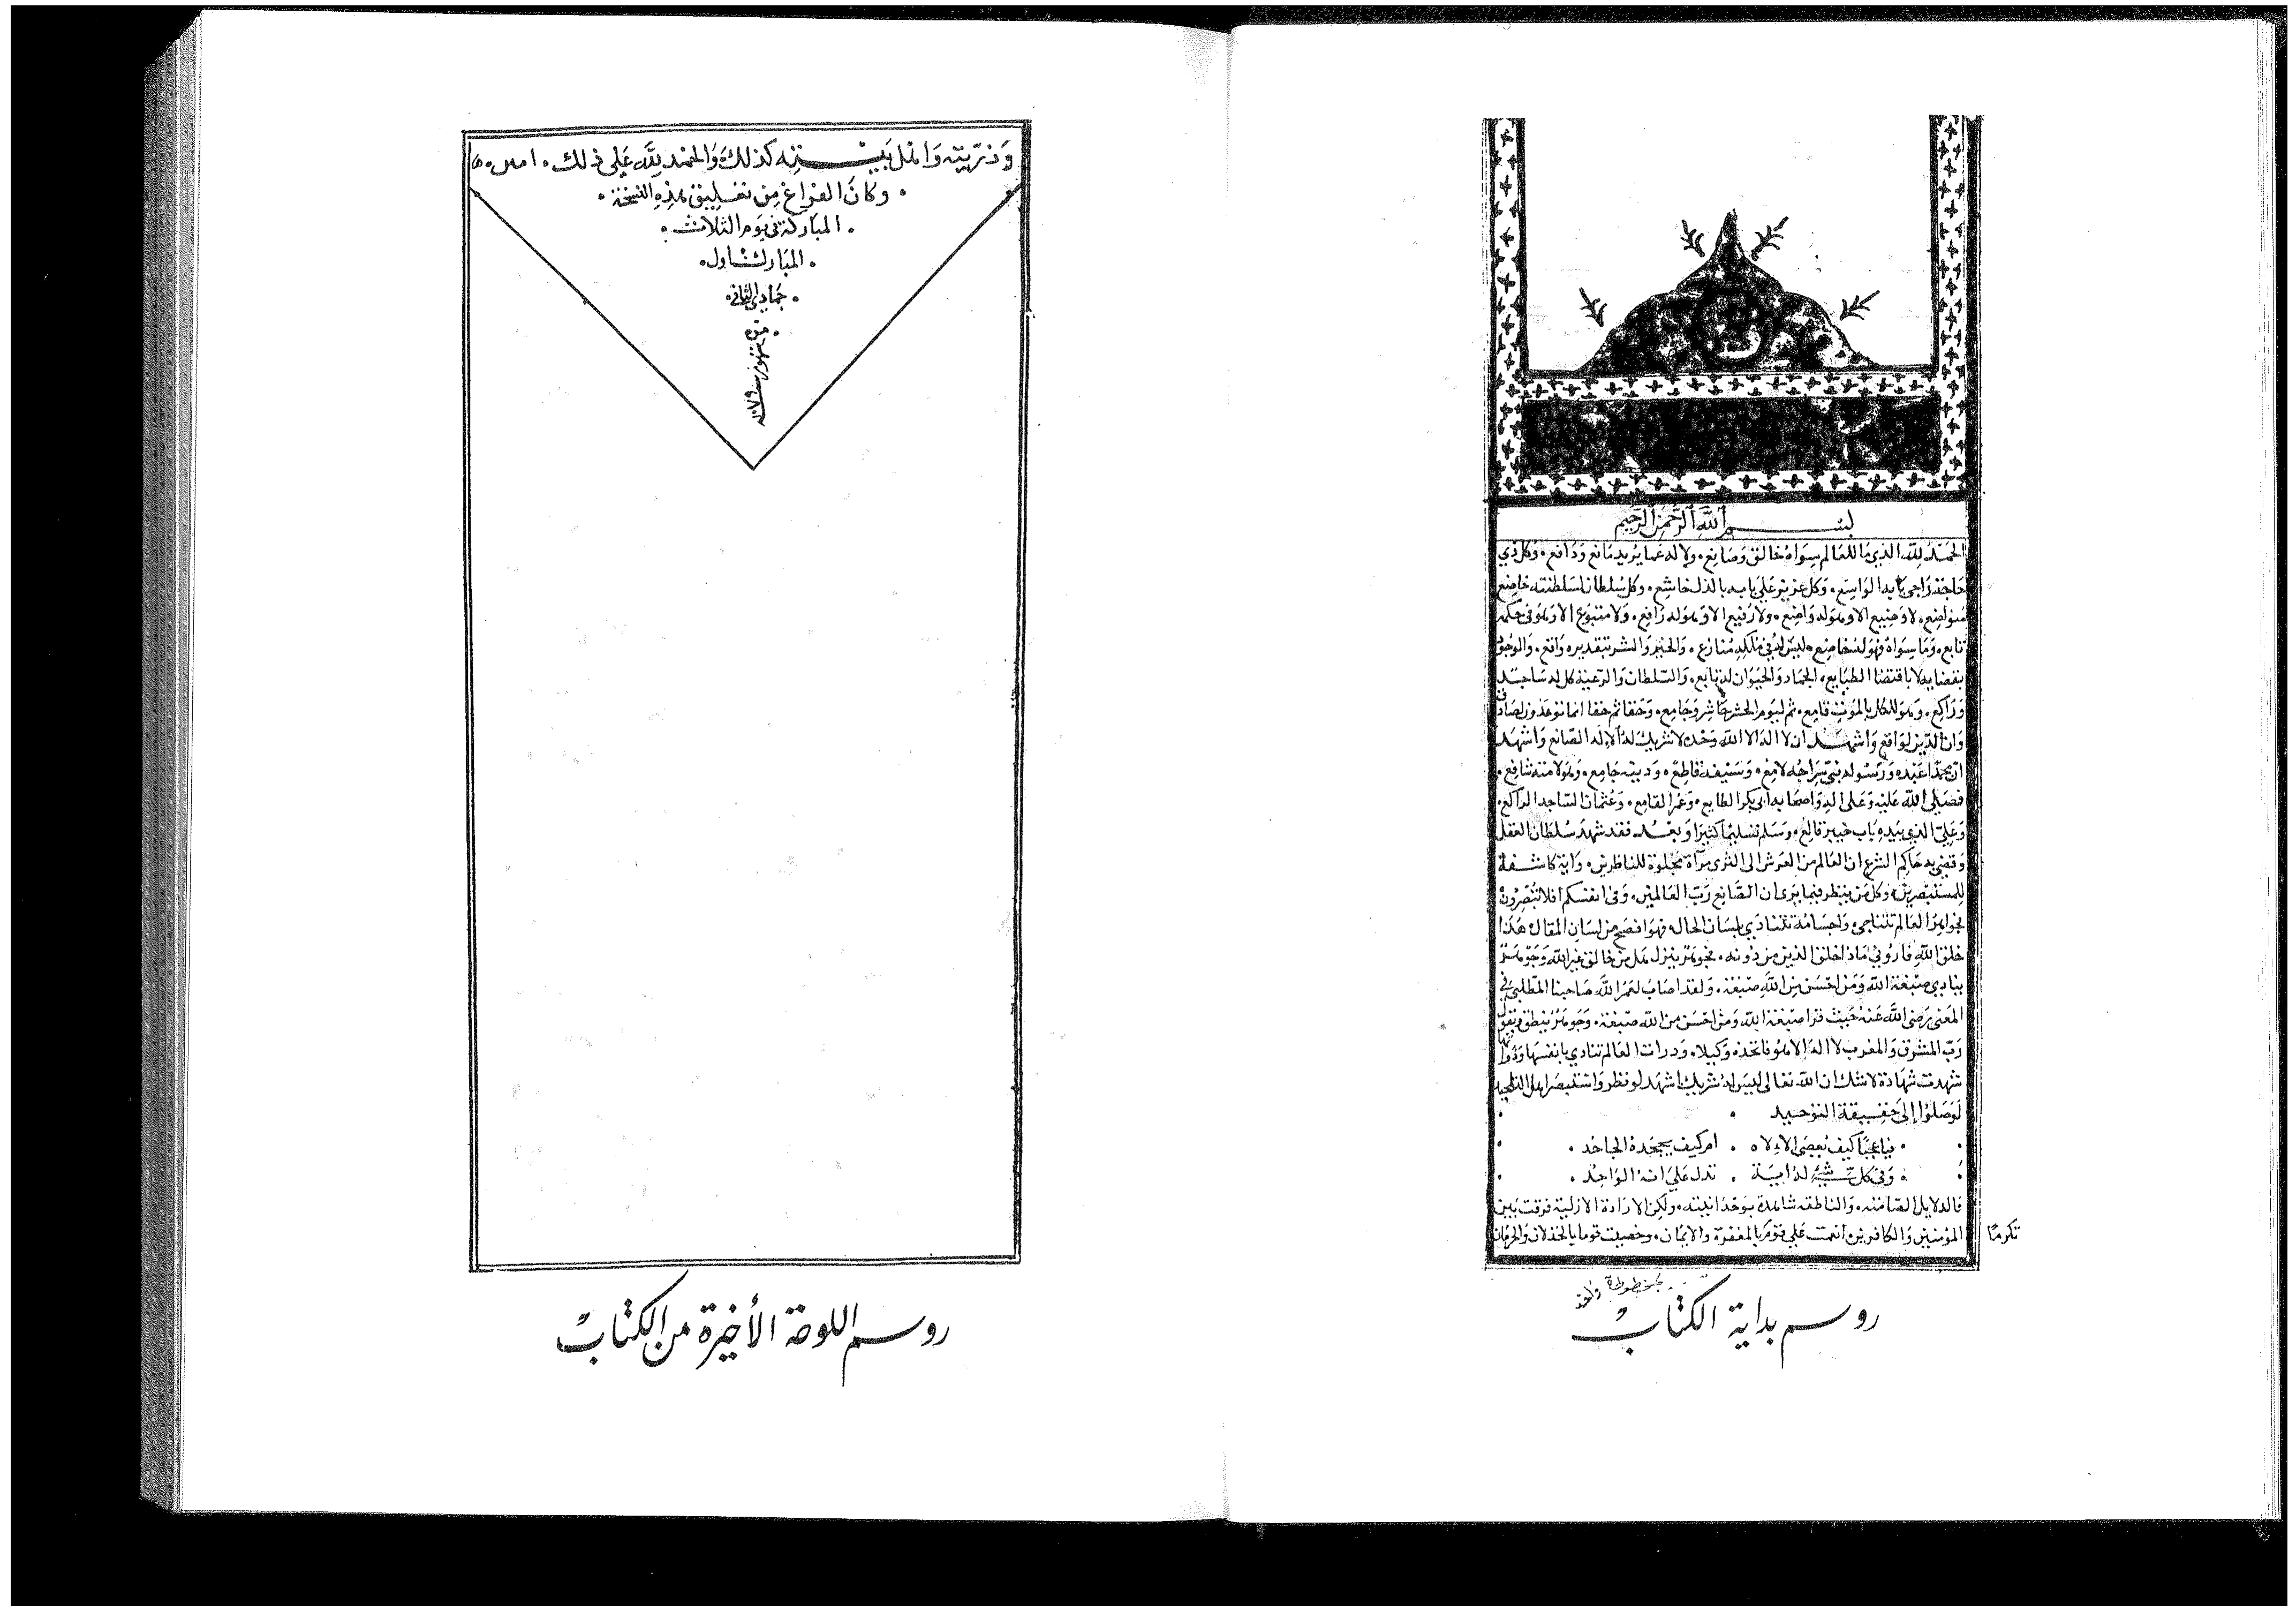 بسم الله الرحمن الرحيم
الحمد لله الذي ما للعالم سواه خالق وصانع، ولا له عما يريد مانع ودافع، وكل ذي
حاجة راجي بابه الواسع، وكل عزيز على بابه بالذل خاشع، وكل سلطان لسلطنته خاضع
متواضع، لا وضيع الا وهو له واضع، ولا رفيع الا وهو له رافع، ولا متبوع الا وهو في حكمه
تابع، وما سواه فهو له خاضع، ليس له في ملكه منازع، والخير والشر بتقديره واقع، والوجود
بقضايه لا باقتضا الطبايع، الجماد والحيوان له تابع، والسلطان والرعية كل له ساجد
وراكع، وهو للكل بالموت قامع، ثم ليوم الحشر حاشر وجامع، وحقا ثم حقا انما توعدون لصادق
وان الدين لواقع واشهد ان لا اله الا الله وحده لا شريك له الاله الصانع واشهد
ان محمدا عبده ورسوله نبي سراجه لامع، وسيفه قاطع، ودينه جامع، وهو لامته شافع،
فصلى الله عليه وعلى اله واصحابه ابى بكر الطايع، وعمر القامع، وعثمان الساجد الراكع،
وعلي الذي بيده باب خيبر قالع، وسلم تسليما كثيرا وبعد فقد شهد سلطان العقل
وقضى به حاكم الشرع ان العالم من العرش الى الثرى مرآة مجلوة للناظرين، واية كاشفة
للمستبصرين، وكل من ينظر فيما يرى ان الصانع رب العالمين، وفى انفسكم افلا تبصرون
فجواهر العالم تتناجى، واجسامه تتنادي بلسان الحال، فهو افصح من لسان المقال، هذا
خلق الله فاروني ماذا خلق الذين من دونه، فجوهر ينزل هل من خالق غير الله وجوهر
ينادي صبغة الله ومن احسن من الله صبغة، ولقد اصاب لعمر الله صاحبنا المطلبي في
المعنى رضى الله عنه حيث قرا صبغة الله ومن احسن من الله صبغة، وجوهر ينطق ويقول
رب المشرق والمغرب لا اله الا هو فاتخذه وكيلا، وذرات العالم تنادي بانفسها وذواتها
شهدت شهادة لا شك ان الله تعالى ليس له شريك اشهد لو نظر واستبصر اهل التلحيد
لوصلوا إلى حقيقة التوحيد
فيا عجبا كيف يعصى الاله، ام كيف يجحده الجاحد،
وفى كل شيء له اية، تدل على انه الواحد،
فالدلايل الصامتة، والناطقة شاهدة بوحدانيته، ولكن الارادة الازلية فرقت بين
المؤمنين والكافرين، أنعمت على قوم بالمغفرة والايمان، وخصيت قوما بالخذلان والحرمان
تكرمًا
روسم بداية الكتاب
وذريته واهل بيته كذلك والحمد لله على ذلك، امين،
وكان الفراغ من تعليق هذه النسخة،
المباركة فى يوم الثلاث،
المبارك اول،
جمادي الثاني،
من شهور سنة
روسم اللوحة الأخيرة من الكتاب